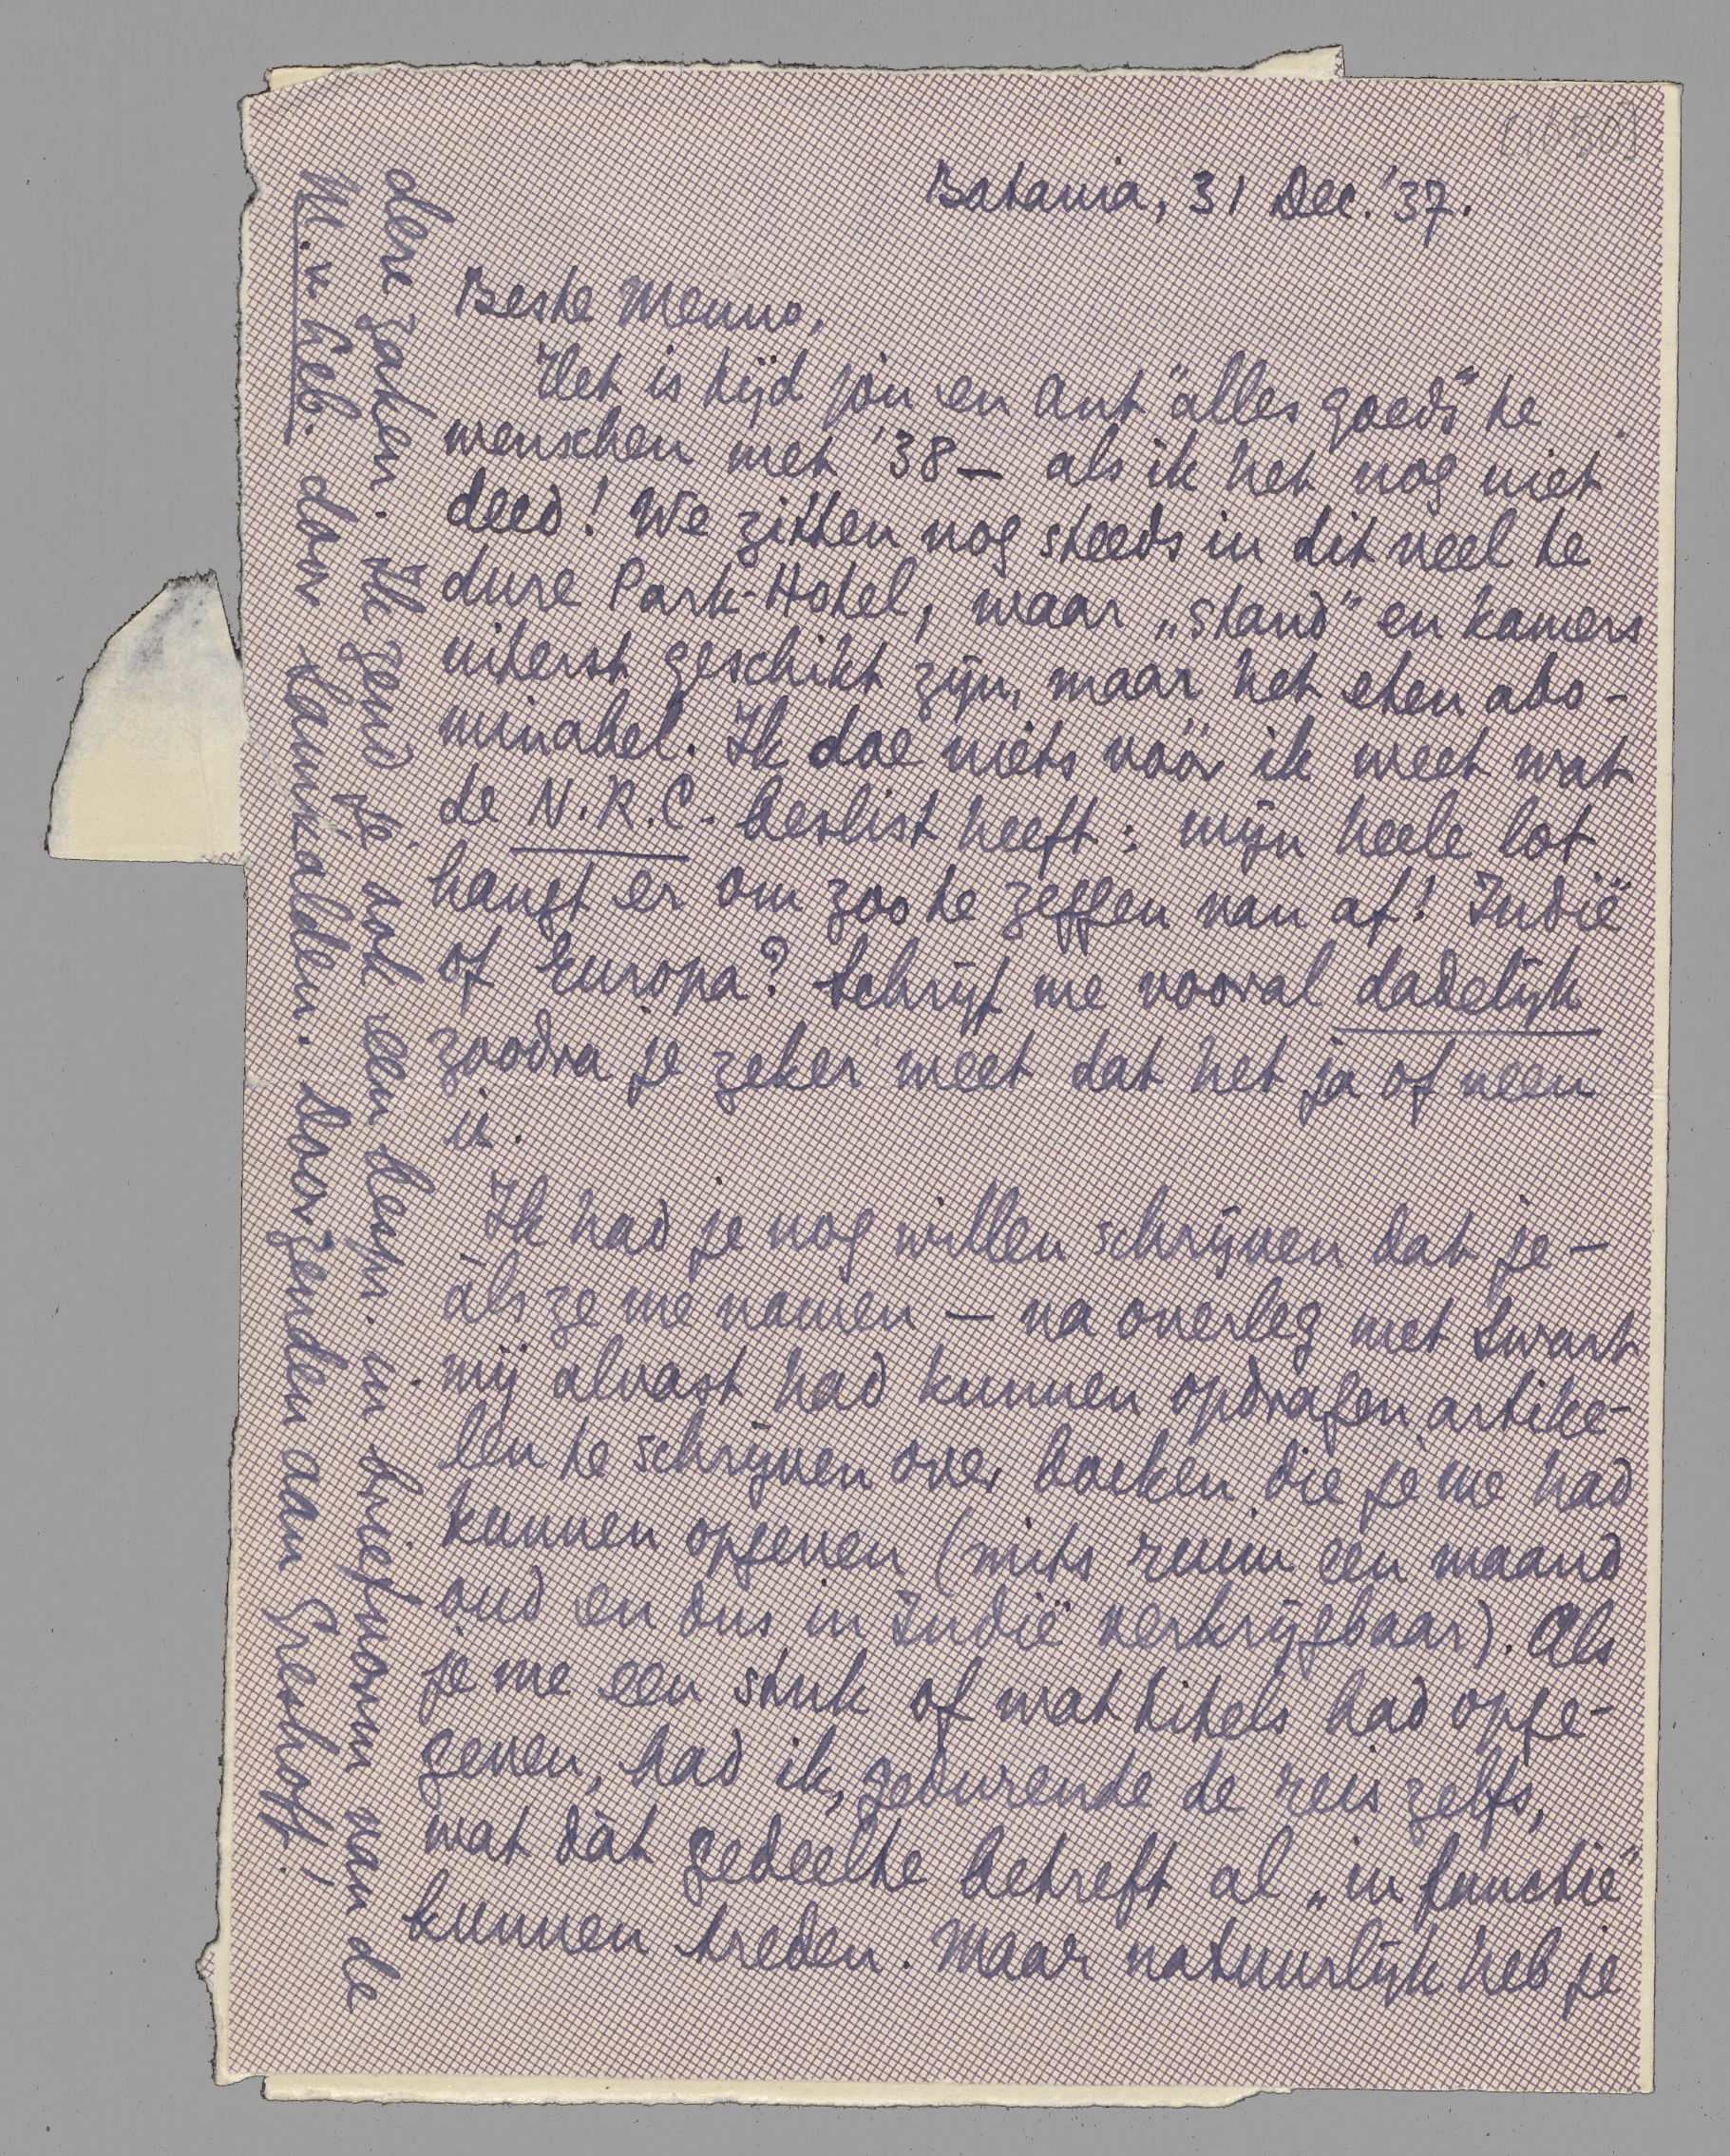 [1050]
Batavia, 31 Dec. '37.
Beste Menno,
Het is tijd jou en Ant "alles goeds" te
wenschen met '38 — als ik het nog niet
deed! We zitten nog steeds in dit veel te
dure Park-Hotel, waar „stand" en kamers
uiterst geschikt zijn, maar het eten abo-
minabel. Ik doe niets vóór ik weet wat
de N.R.C. beslist heeft: mijn heele lot
hangt er om zoo te zeggen van af! Indië
of Europa? Schrijf me vooral dadelijk
zoodra je zeker weet dat het ja of neen
is.
Ik had je nog willen schrijven dat je —
áls ze me namen — na overleg met Swart
mij alvast had kunnen opdragen artike-
len te schrijven over boeken die je me had
kunnen opgeven (mits ruim een maand
oud en dus in Indië verkrijgbaar). Als
je me een stuk of wat titels had opge-
geven, had ik, gedurende de reis zelfs,
wat dàt gedeelte betreft al „in functie"
kunnen treden. Maar natuurlijk heb je
dere zaken. Ik zend je ook een berijmde in briefvorm van de
M. v. Heb. dour te doorzenden aan Greshoff!